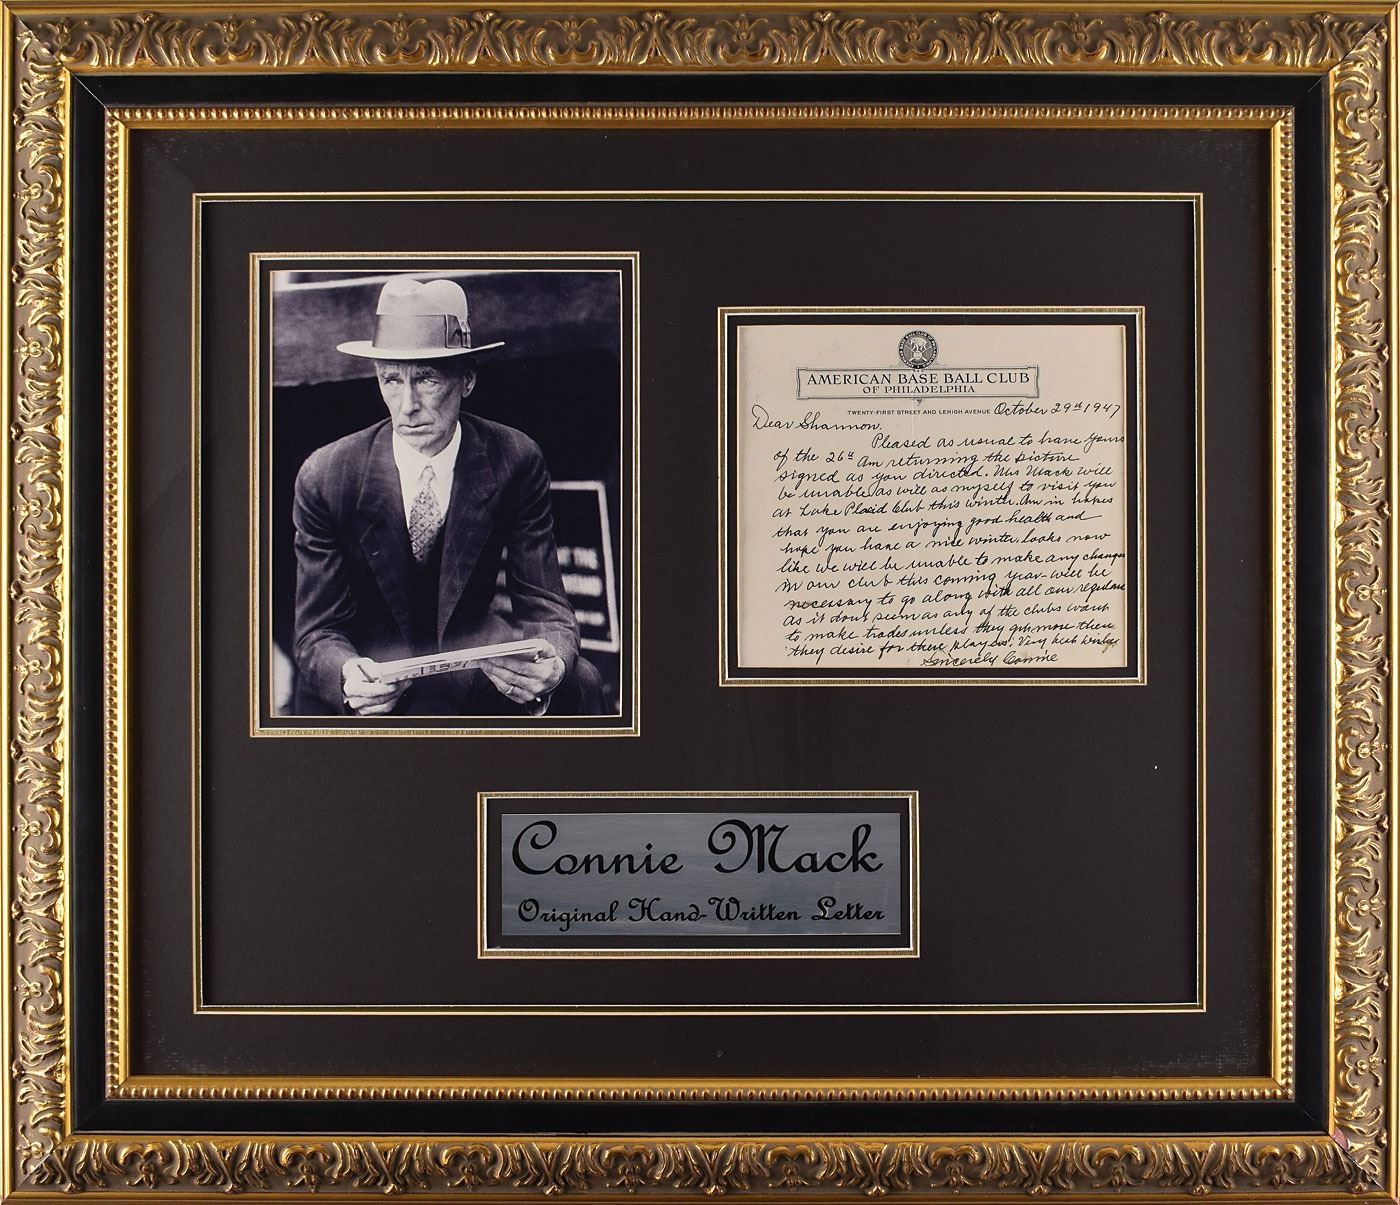 AMERICAN BASE BALL CLUB
OF PHILADELPHIA
TWENTY-FIRST STREET AND LEHIGH AVENUE October 29th 1947
Dear Shannon.
Pleased as usual to have yours
of the 26th Am returning the picture
signed as you directed. Mrs Mack will
be unable as will as myself to visit you
at Lake Placid Club this winter. Am in hopes
that you are enjoying good health and
hope you have a nice winter. Looks now
like we will be unable to make any changes
in our club this coming year - will be
necessary to go along with all our regulars
as it dont seem as any of the clubs want
to make trades unless they get more then
they desire for there players. Very best wishes
Sincerely Connie
Connie Mack
Original Hand-Written Letter